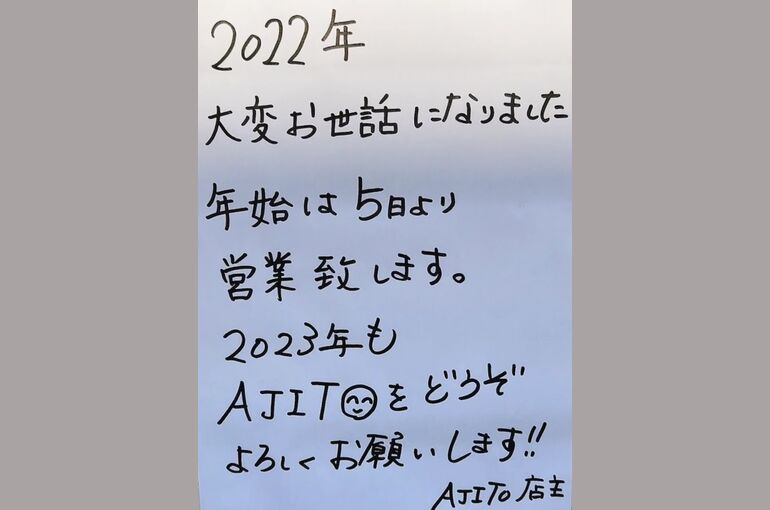 2022年
大変お世話になりました
年始は5日より
営業致します。
2023年も
AJITO😊をどうぞ
よろしくお願いします!!
AJITO店主